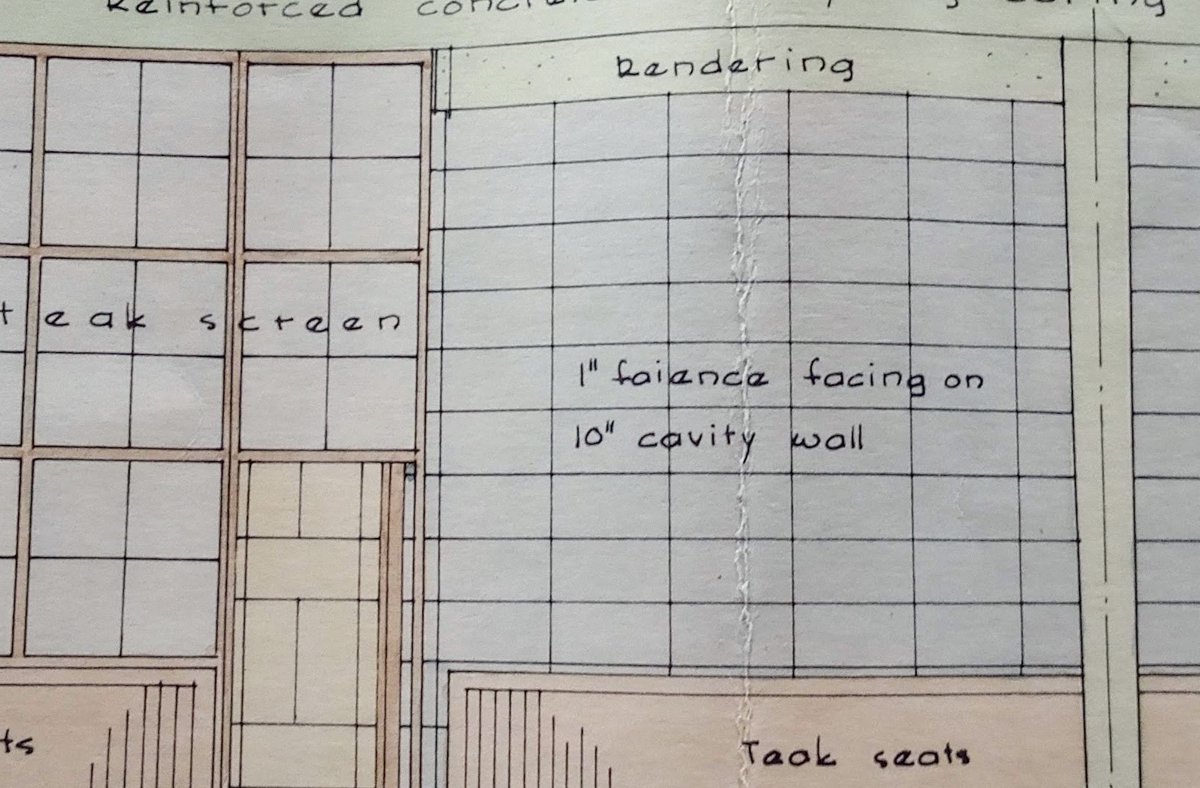 Reinforced
Rendering
teak screen
1" faience facing on
10" cavity wall
Teak seats